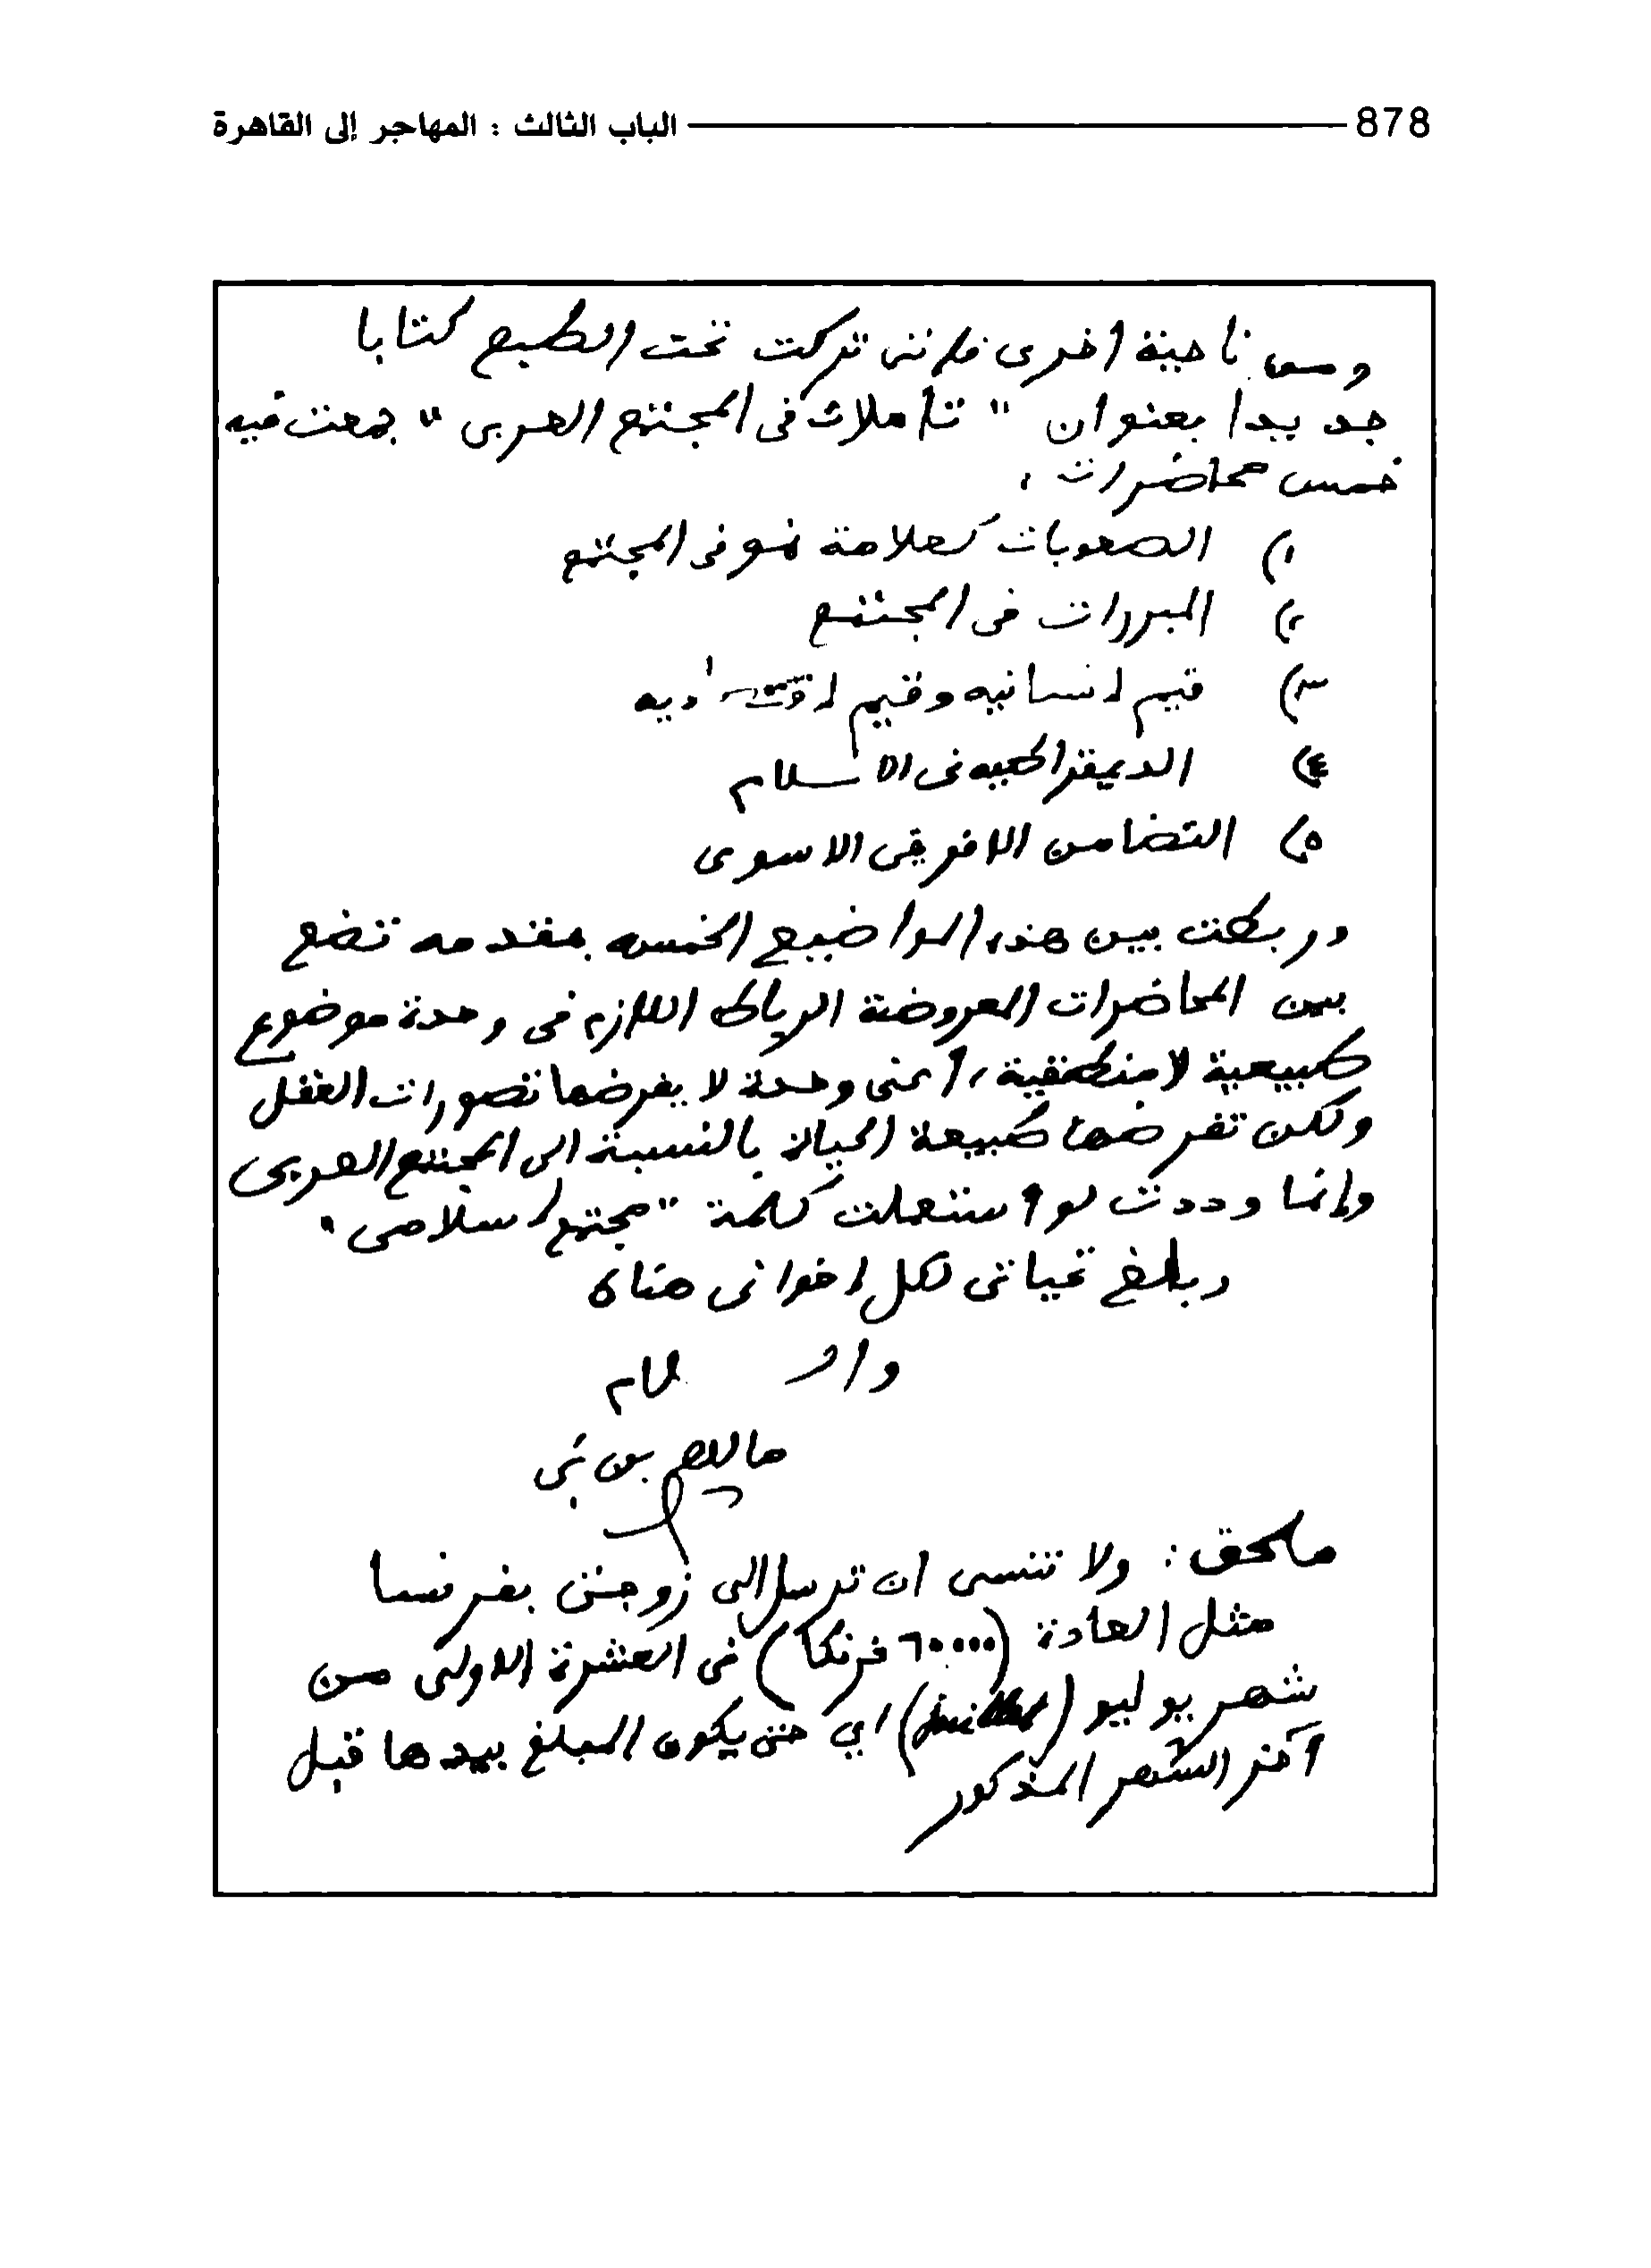 878 الباب الثالث : المهاجر إلى القاهرة
ومن ناحية أخرى فإننى تركت تحت الطبع كتابا
جديدا بعنوان " تأملات فى المجتمع العربى " جمعت فيه
خمس محاضرات .
١) الصعوبات كعلامة نمو فى المجتمع
٢) المبررات فى المجتمع
٣) قيم انسانيه وقيم اقتصاديه
٤) الديمقراطيه فى الاسلام
٥) التضامن الافريقى الاسوى
وربطت بين هذه المواضيع الخمسه بمقدمه تضع
بين المحاضرات المعروضة الرباط اللازم فى وحدة موضوع
طبيعية لا منطقية ، أعنى وحدة لا يفرضها تصورات العقل
ولكن تفرضها طبيعة الحياة بالنسبة الى المجتمع العربى
وإنما وددت لو أستعملت كلمة " مجتمع اسلامى "
وبلغ تحياتى لكل اخوانى هناك
والسلام
مالك بن نبى
ملحق : ولا تنسى ان ترسل الى زوجتى بفرنسا
مثل العادة (٦٠٠٠٠ فرنكا) فى العشرة الاولى من
شهر يوليو (juillet) اي حتى يكون المبلغ بيدها قبل
آخر الشهر المذكور